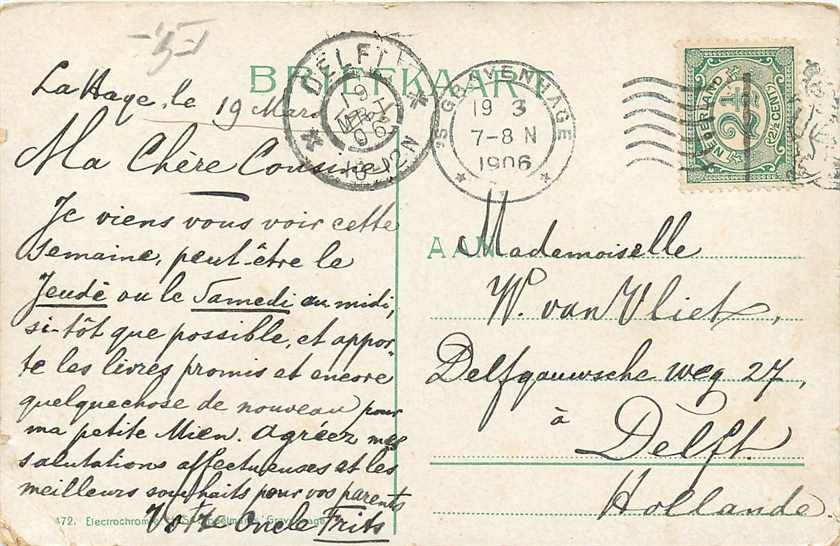 -5-
BRIEFKAART
DELFT
19 MRT 06
12N
'S GRAVENHAGE
19 3
7-8 N
1906
NEDERLAND
2½
(2½ CENT)
La Haye, le 19 Mars
Ma Chère Cousine,
Je viens vous voir cette
semaine, peut-être le
Jeudi ou le Samedi au midi,
si-tôt que possible, et appor-
te les livres promis et encore
quelquechose de nouveau pour
ma petite Mien. Agréez mes
salutations affectueuses et les
meilleurs souhaits pour vos parents
Votre Oncle Frits
AAN
Mademoiselle
W. van Vliet,
Delfgauwsche weg 27,
à
Delft
Hollande.
472. Electrochromie